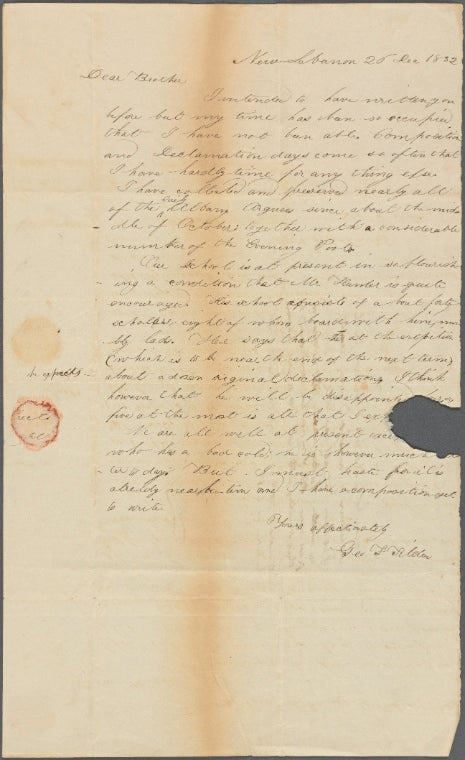 New Lebanon 26 Dec 1832
Dear Brother
I intended to have written you
before but my time has ban so occupied
that I have not ban able Composition
and Declamation days come so often that
I have hardly time for any thing else
I have collected and preserved nearly all
of the Albany Argus since about the mid
dle of October, together with a considerable
number of the Evening Posts
Our School is at present in so flourish
ing a condition that Mr is quite
encouraged His school consists of about forty
scholars eight of whom board with him,
lads. He says that at the
(which is to be near the end of the next term)
he expects
about a dozen original declamations, I think
however that he will be disappointed
five at the most is all that I
We are all well at present
who has a bad cold; he is however much
to day But I must haste for it is
already near time and I have a composition yet
to write
Yours affectinately
Geo T Tilden